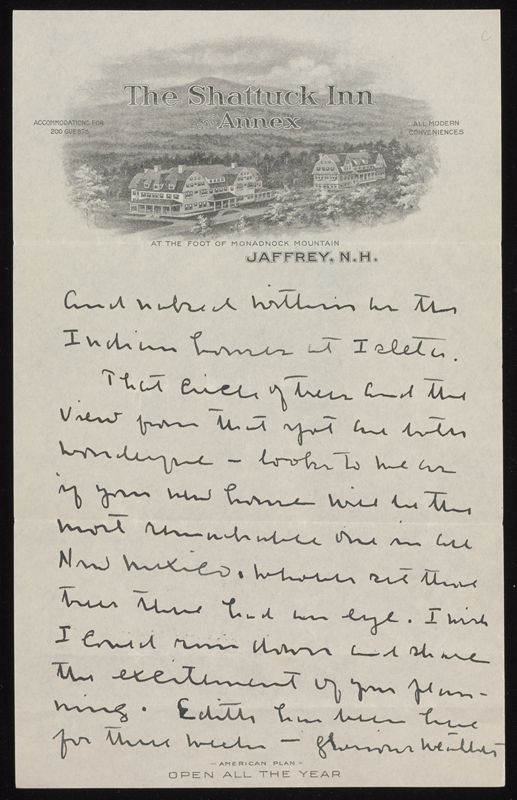 The Shattuck Inn
and
Annex
ACCOMMODATIONS FOR
200 GUESTS
ALL MODERN
CONVENIENCES
AT THE FOOT OF MONADNOCK MOUNTAIN
JAFFREY, N.H.
and naked within as the
Indian houses at Isleta.
That circle of trees and the
view from that spot are both
wonderful – looks to me as
if your new house will be the
most remarkable one in all
New Mexico. Whoever set those
trees there had an eye. I wish
I could run down and share
the excitement of your plan-
ning. Edith has been here
for three weeks – glorious weather
– AMERICAN PLAN –
OPEN ALL THE YEAR